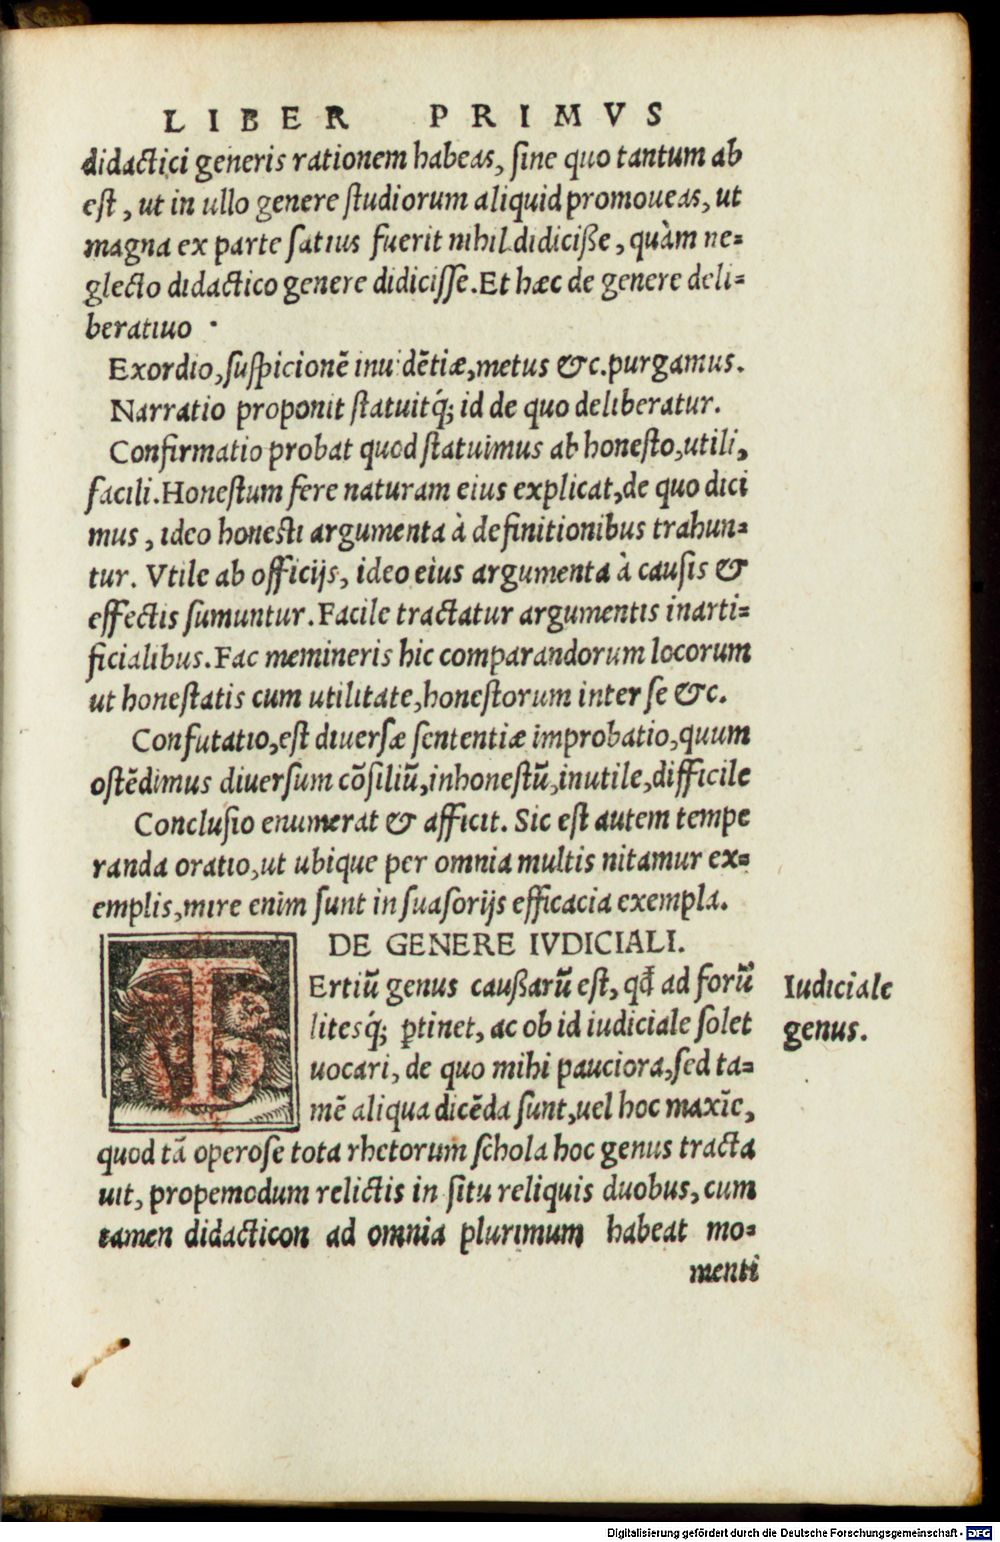 LIBER PRIMVS
didactici generis rationem habeas, sine quo tantum ab
est, ut in ullo genere studiorum aliquid promoueas, ut
magna ex parte satius fuerit nihil didiciße, quàm ne=
glecto didactico genere didicisse. Et hæc de genere deli=
beratiuo .
Exordio, suspicionẽ inuidẽtiæ, metus &c. purgamus.
Narratio proponit statuitq́; id de quo deliberatur.
Confirmatio probat quod statuimus ab honesto, utili,
facili. Honestum fere naturam eius explicat, de quo dici
mus, ideo honesti argumenta à definitionibus trahun=
tur. Vtile ab officijs, ideo eius argumenta à causis &
effectis sumuntur. Facile tractatur argumentis inarti=
ficialibus. Fac memineris hic comparandorum locorum
ut honestatis cum utilitate, honestorum inter se &c.
Confutatio, est diuersæ sententiæ improbatio, quum
ostẽdimus diuersum cõsiliũ, inhonestũ, inutile, difficile
Conclusio enumerat & afficit. Sic est autem tempe
randa oratio, ut ubique per omnia multis nitamur ex=
emplis, mire enim sunt in suasorijs efficacia exempla.
DE GENERE IVDICIALI.
TErtiũ genus caußarũ est, qđ ad forũ
litesq́; ꝑtinet, ac ob id iudiciale solet
uocari, de quo mihi pauciora, sed ta=
mẽ aliqua dicẽda sunt, uel hoc maxĩe,
quod tã operose tota rhetorum schola hoc genus tracta
uit, propemodum relictis in situ reliquis duobus, cum
tamen didacticon ad omnia plurimum habeat mo=
menti
Iudiciale
genus.
Digitalisierung gefördert durch die Deutsche Forschungsgemeinschaft - DFG